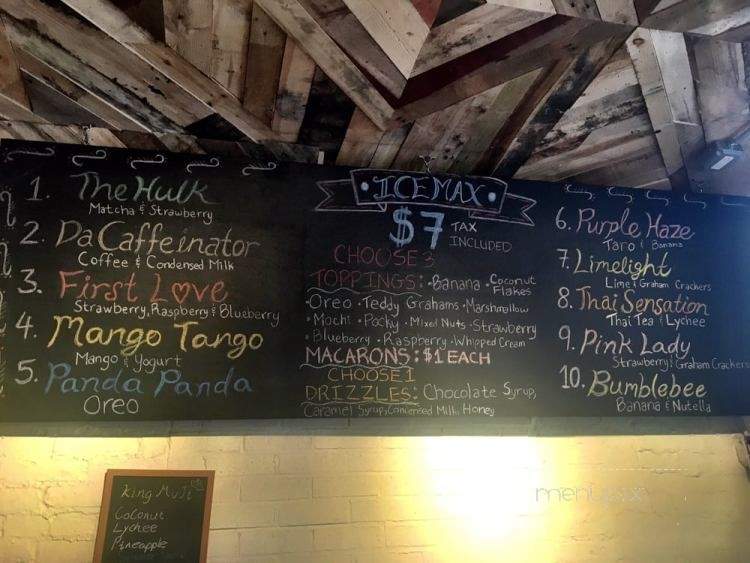 1. The Hulk
Matcha & Strawberry
2. Da Caffeinator
Coffee & Condensed Milk
3. First Love
Strawberry, Raspberry & Blueberry
4. Mango Tango
Mango & Yogurt
5. Panda Panda
Oreo
• ICEMAX •
$7 TAX
INCLUDED
CHOOSE 3
TOPPINGS: •Banana •Coconut
Flakes
•Oreo •Teddy Grahams •Marshmallow
•Mochi •Pocky •Mixed Nuts •Strawberry
•Blueberry •Raspberry •Whipped Cream
MACARONS: $1 EACH
CHOOSE 1
DRIZZLES: Chocolate Syrup,
Caramel Syrup, Condensed Milk, Honey
6. Purple Haze
Taro & Banana
7. Limelight
Lime & Graham Crackers
8. Thai Sensation
Thai Tea & Lychee
9. Pink Lady
Strawberry & Graham Crackers
10. Bumblebee
Banana & Nutella
King Muji
Coconut
Lychee
Pineapple
menupix